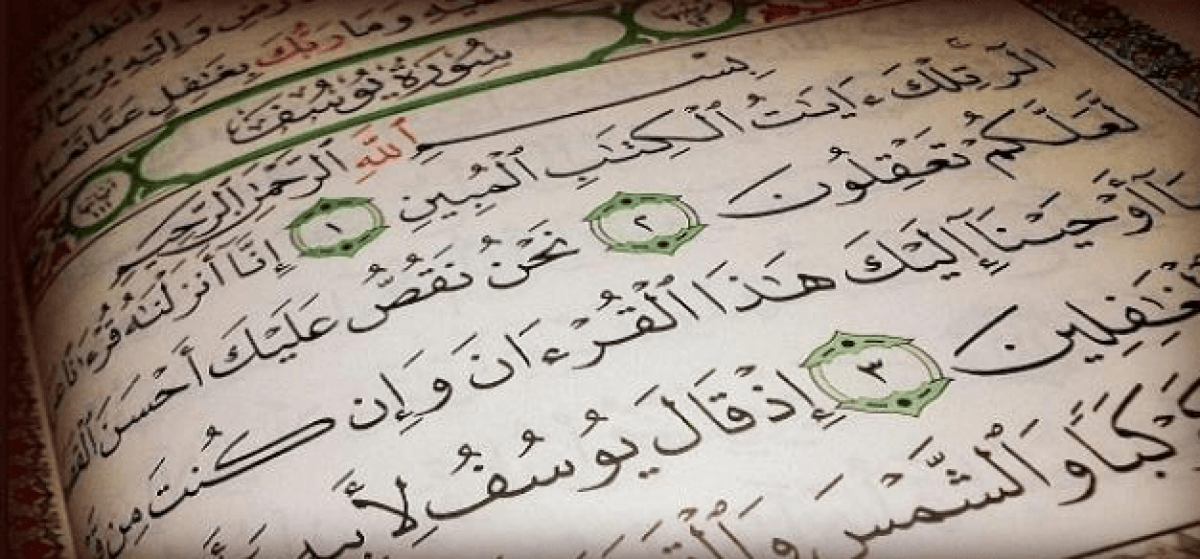 وَإِلَيْهِ يُرْجَعُ
وَمَا رَبُّكَ بِغَٰفِلٍ عَمَّا
سُورَةُ يُوسُفَ
بِسْمِ ٱللَّهِ ٱلرَّحْمَٰنِ ٱلرَّحِيمِ
الٓر تِلْكَ ءَايَٰتُ ٱلْكِتَٰبِ ٱلْمُبِينِ ١ إِنَّآ أَنزَلْنَٰهُ قُرْءَٰنًا
لَّعَلَّكُمْ تَعْقِلُونَ ٢ نَحْنُ نَقُصُّ عَلَيْكَ أَحْسَنَ
مَآ أَوْحَيْنَآ إِلَيْكَ هَٰذَا ٱلْقُرْءَانَ وَإِن كُنتَ مِن
ٱلْغَٰفِلِينَ ٣ إِذْ قَالَ يُوسُفُ لِأَبِيهِ
كَبًا وَٱلشَّمْسَ وَٱلْقَمَرَ